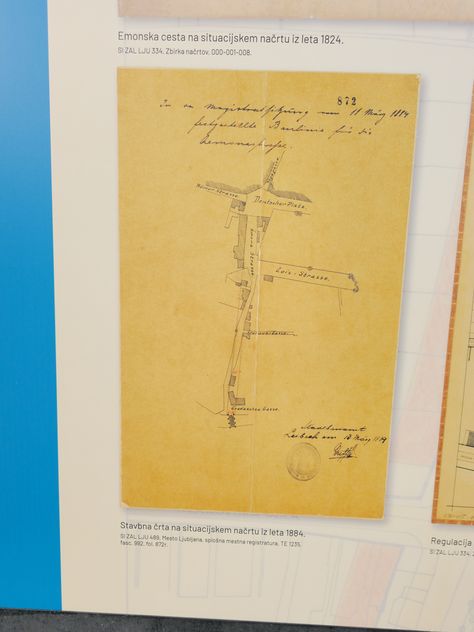 Emonska cesta na situacijskem načrtu iz leta 1824.
SI ZAL LJU 334, Zbirka načrtov, 000-001-008.
872
In der Magistratssitzung vom 11 März 1884
festgestellte Baulinie für die
Emonastrasse.
Römer Strasse.
Deutscher Platz.
Emona Strasse
Lois - Strasse.
Gasse.
Stadtbauamt
Laibach am 13 März 1884
Stavbna črta na situacijskem načrtu iz leta 1884.
SI ZAL LJU 489, Mesto Ljubljana, splošna mestna registratura, TE 1235,
fasc. 992, fol. 872r.
Regulacija
SI ZAL LJU 334,